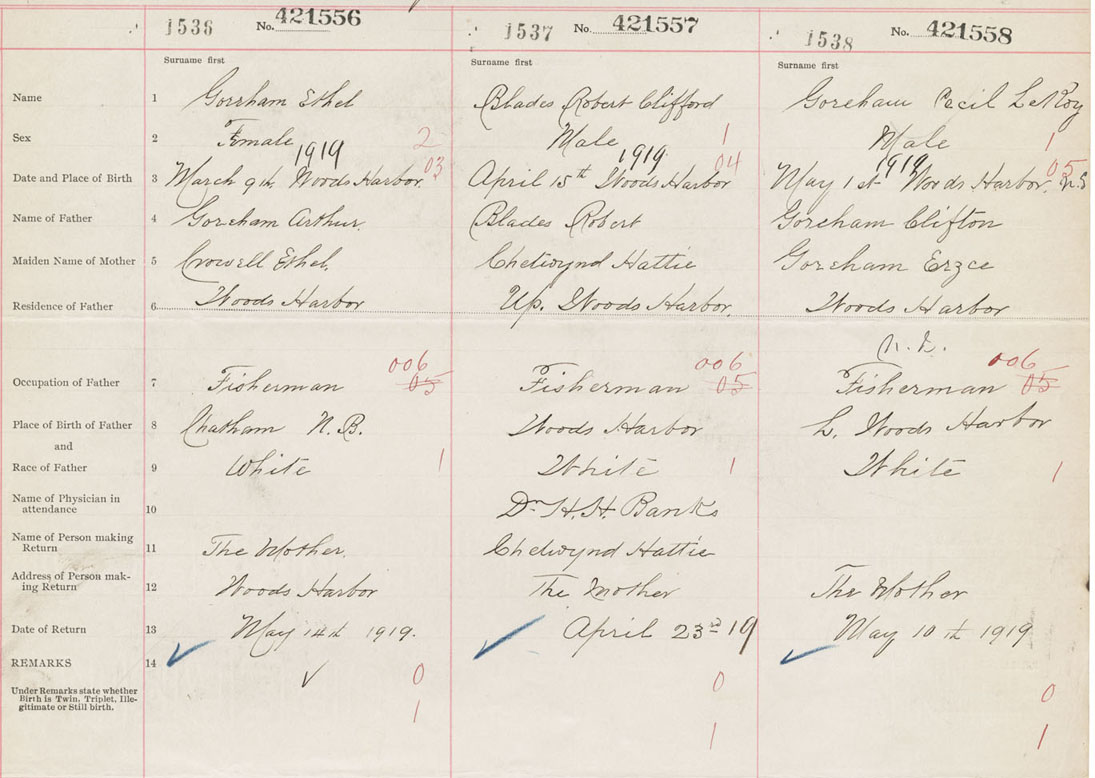 1536 No. 421556 1537 No. 421557 1538 No. 421558
Surname first Surname first Surname first
Name 1 Goreham Ethel Blades Robert Clifford Goreham Cecil LeRoy
Sex 2 Female 2 Male 1 Male 1
1919 03 1919 04 1919 05
Date and Place of Birth 3 March 9th, Woods Harbor April 15th Woods Harbor May 1st Woods Harbor, N.S
Name of Father 4 Goreham Arthur. Blades Robert Goreham Clifton
Maiden Name of Mother 5 Crowell Ethel. Chetwynd Hattie Goreham
Residence of Father 6 Woods Harbor Up. Woods Harbor. Woods Harbor
006 006 006
Occupation of Father 7 Fisherman 05 Fisherman 05 Fisherman 05
Place of Birth of Father 8 Chatham N.B. Woods Harbor L. Woods Harbor
and
Race of Father 9 White 1 White 1 White 1
Name of Physician in
attendance 10 Dr H. H. Banks
Name of Person making
Return 11 The Mother. Chetwynd Hattie
Address of Person mak-
ing Return 12 Woods Harbor The Mother The Mother
Date of Return 13 May 14th 1919. April 23rd 19 May 10th 1919
REMARKS 14 0 0 0
Under Remarks state whether
Birth is Twin, Triplet, Ille-
gitimate or Still birth. 1 1 1